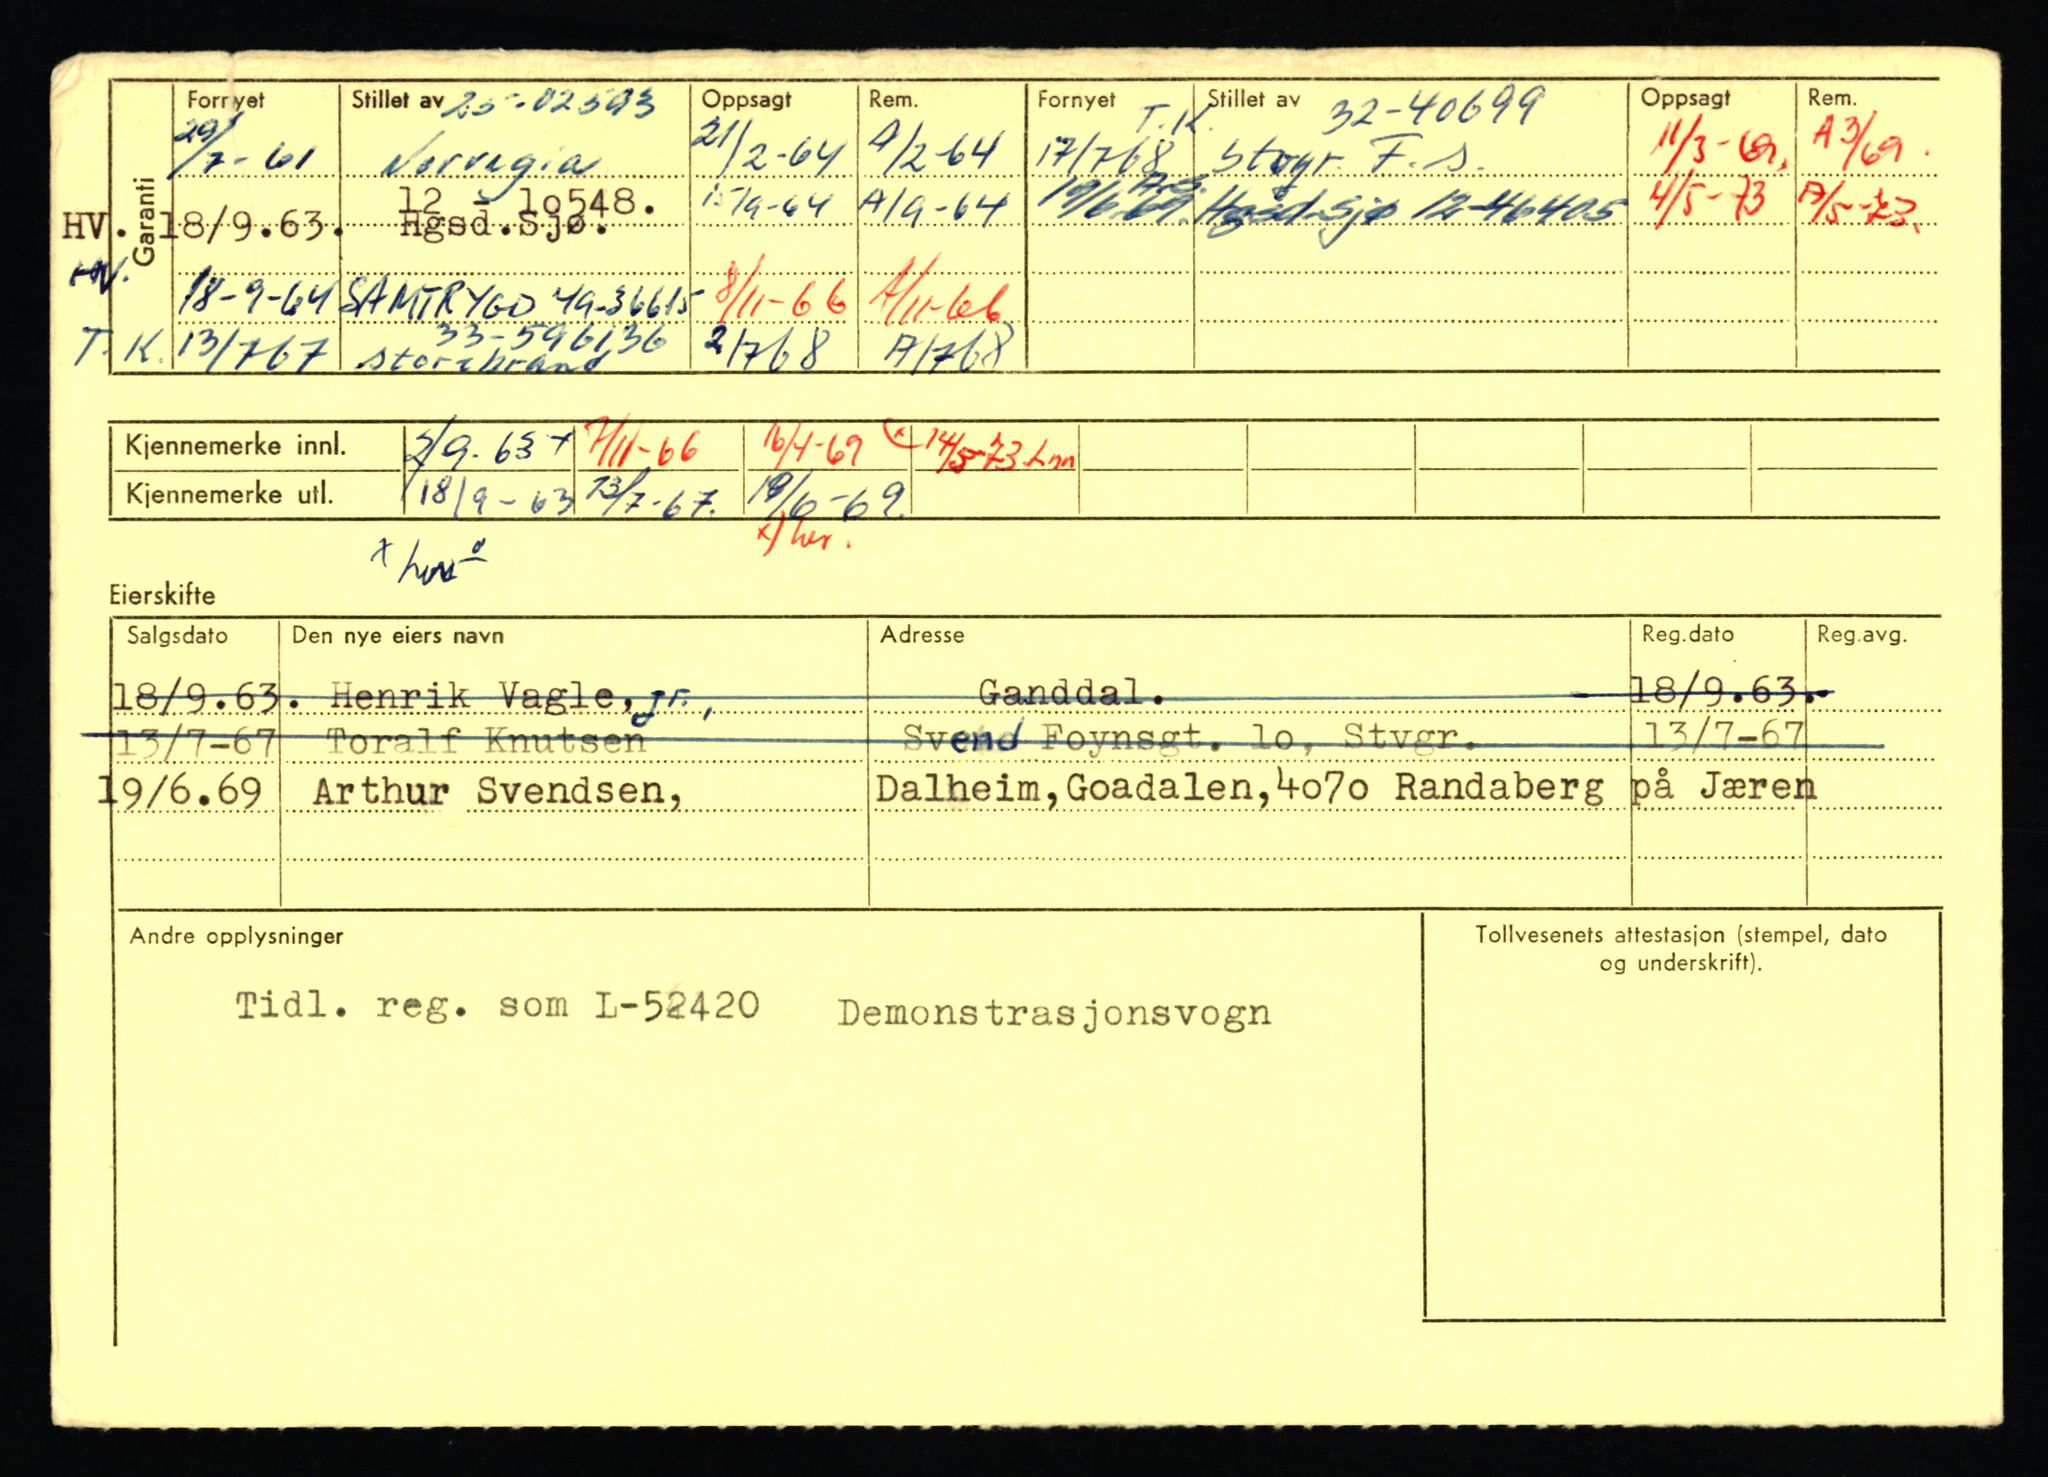 Garanti
Fornyet Stillet av 25-02593 Oppsagt Rem. Fornyet T.K. Stillet av 32-40699 Oppsagt Rem.
29/7-61 Norvegia 21/2-64 A/2-64 17/768 Stvgr. F. S. 11/3-69. A3/69.
12 - 1o548.
HV. 18/9.63. Hgsd.Sjø. 15/9-64 A/9-64 19/6-69. A.S. Hgsd.Sjø 12-46405 4/5-73 A/5-73.
HV. 18-9-64 SAMTRYGD 49-36615 8/11-66 A/11-66
33-596136
T.K. 13/767 Storebrand 2/768 A/768
Kjennemerke innl. 2/9-63 x 7/11-66 16/4-69 (x 14/5-73 Inn
Kjennemerke utl. 18/9-63 13/7-67. 19/6-69.
x x) her.
Eierskifte
Salgsdato Den nye eiers navn Adresse Reg.dato Reg.avg.
18/9.63. Henrik Vagle, jr., Ganddal. 18/9.63.
13/7-67 Toralf Knutsen Svend Foynsgt. 1o, Stvgr. 13/7-67
19/6.69 Arthur Svendsen, Dalheim,Goadalen,4o7o Randaberg på Jæren
Andre opplysninger Tollvesenets attestasjon (stempel, dato
og underskrift).
Tidl. reg. som L-52420 Demonstrasjonsvogn